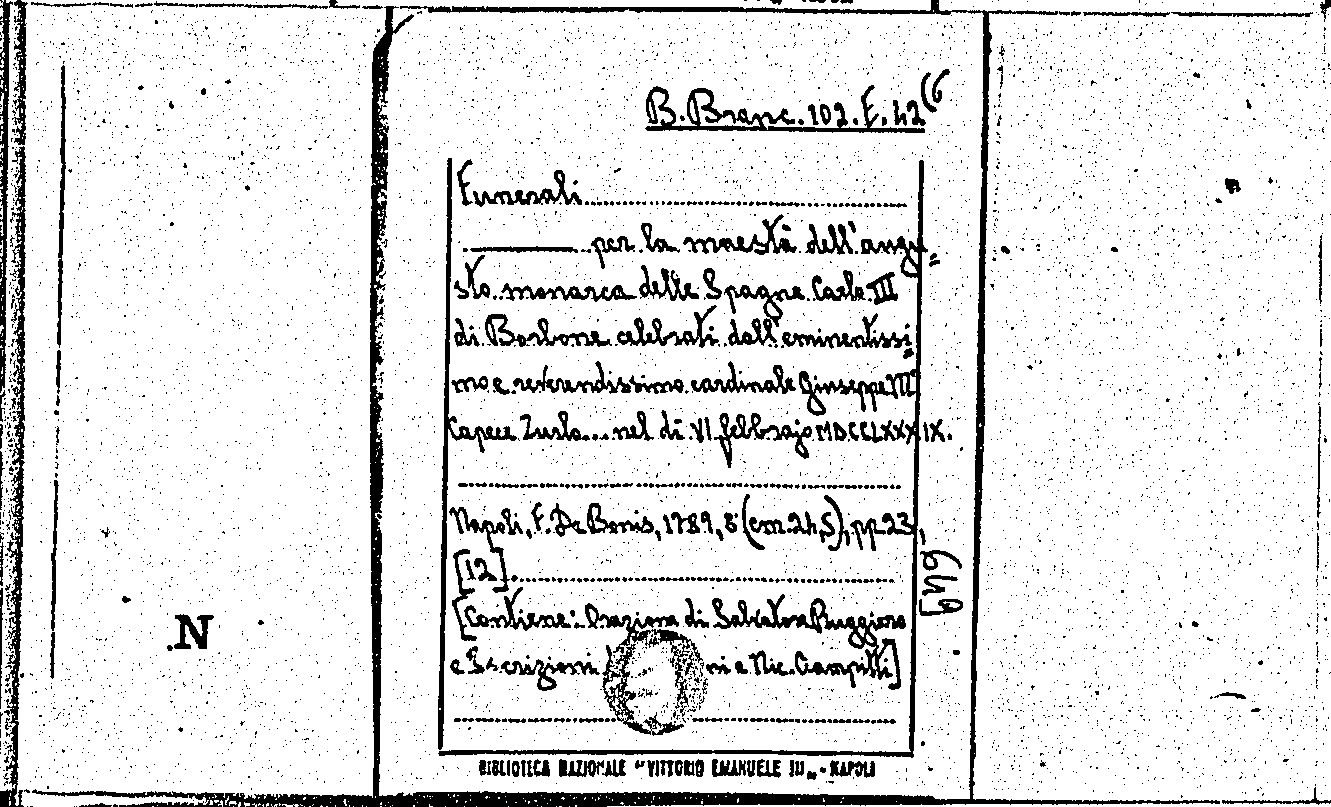 B. Branc. 102. E. 42 (6
Funerali
——— per la maestà dell'augu=
sto monarca delle Spagne Carlo III
di Borbone celebrati dall'eminentissi=
mo e reverendissimo cardinale Giuseppe M.ª
Capece Zurlo... nel dì VI febbrajo MDCCLXXXIX.
Napoli, F. De Bonis, 1789, 8° (cm. 24,5), pp. 23,
[12].
[Contiene: Orazione di Salvatore Ruggiero
e Iscrizioni ni e Nic. Ciampitti]
649
N
BIBLIOTECA NAZIONALE "VITTORIO EMANUELE III„ - NAPOLI